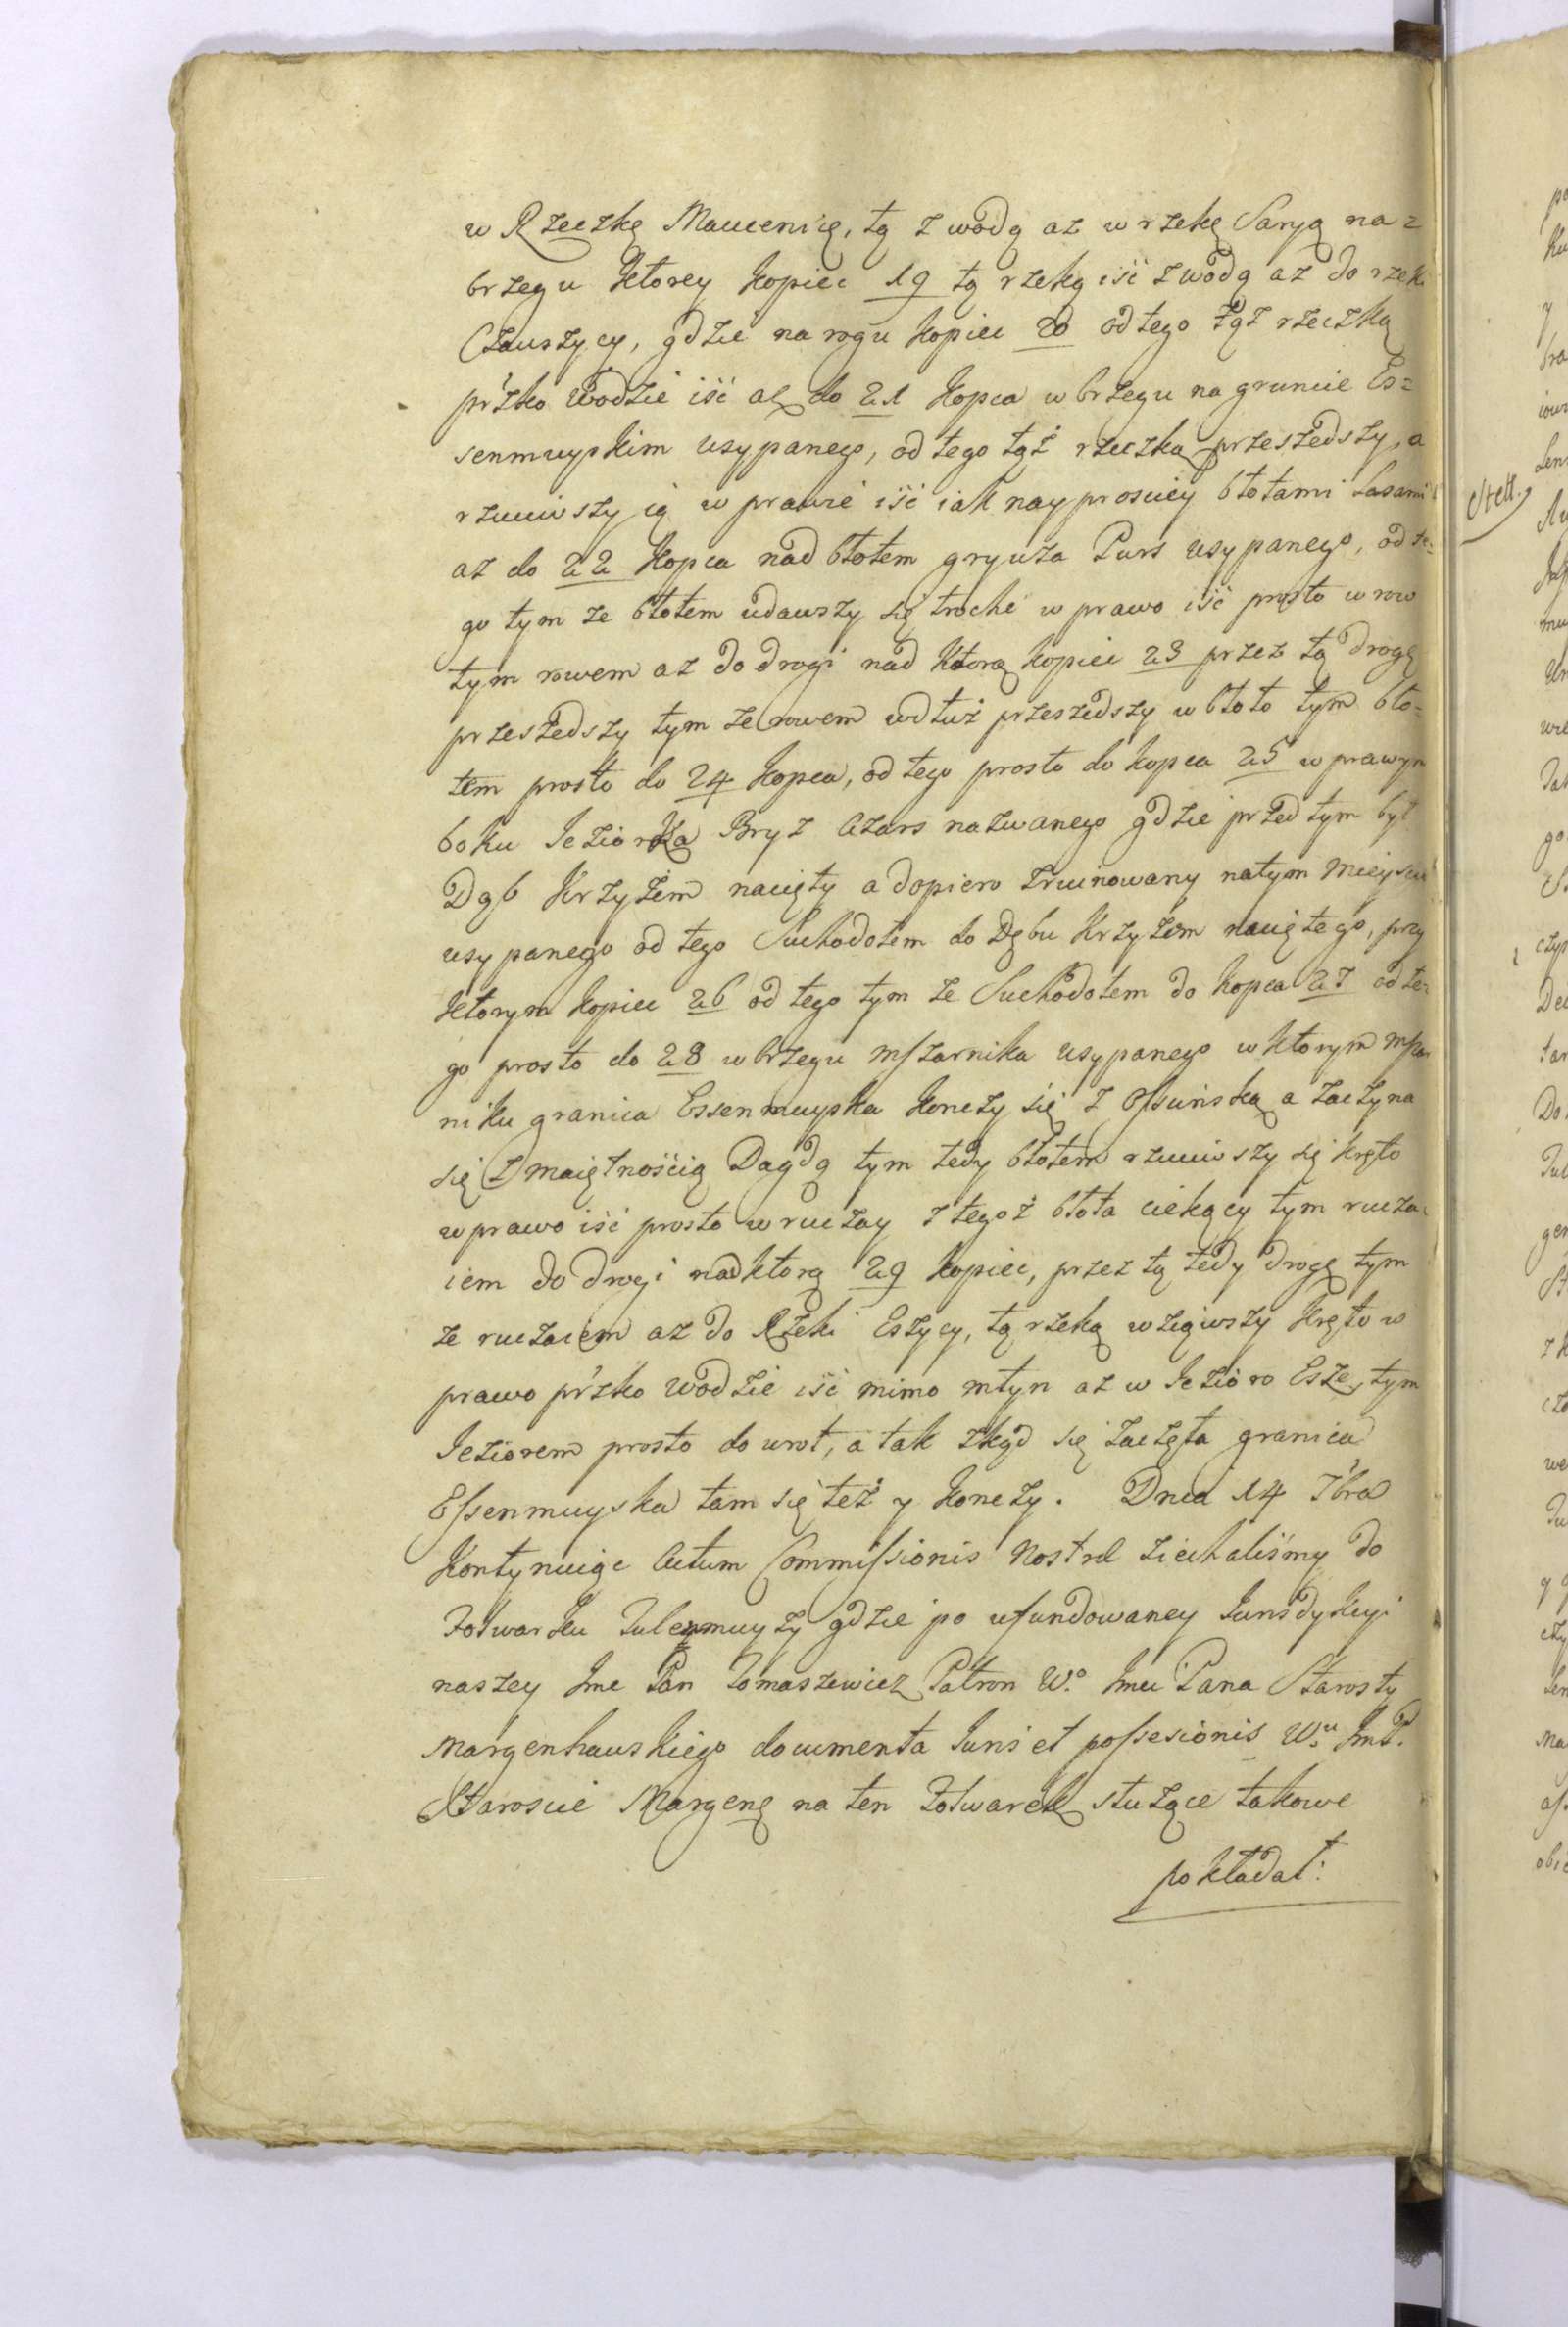 w Rzeczkę Maucenicę, tą z wodą aż w rzekę Saryą na=
brzegu ktorey kopiec 19 tą rzeką iść z wodą aż do rzeki
Czauszycy, gdzie na rogu kopiec 20 od tego tąż rzeczką
przko wodzie iść aż do 21 kopca w brzegu na gruncie Es=
senmuyskim usypanego, od tego tąż rzeczką przeszedszy, a
rzuciwszy ią w prawie iść iak nayprosciey błotami Lasami
aż do 22 kopca nad błotem gryuża Purs usypanego, od te=
go tym że błotem udawszy się troche w prawo iść prosto w row
tym rowem aż do drogi nad ktorą kopiec 23 przez tą drogę
przeszedszy tym że rowem wdłuż przeszedszy w błoto tym bło=
tem prosto do 24 kopca, od tego prosto do kopca 25 w prawym
boku Ieziorka Bryz Azars nazwanego gdzie przed tym był
Dąb Krzyżem nacięty a dopiero zruinowany na tym mieyscu
usypanego od tego Suchodołem do Dębu Krzyżem naciętego, przy
ktorym kopiec 26 od tego tym że Suchodołem do kopca 27 od te=
go prosto do 28 w brzegu mszarnika usypanego w ktorym mszar
niku granica Essenmuyska konczy się z Ossuńską a zaczyna
się z maiętnością Dagdą tym tedy błotem rzuciwszy się kręto
w prawo iść prosto w ruczay z tegoż błota ciekący tym rucza
iem do drogi nad ktorą 29 kopiec, przez tą tedy drogę tym
że ruczaiem aż do Rzeki Eszycy, tą rzeką wziąwszy kręto w
prawo przko wodzie iść mimo młyn aż w Iezioro Esze, tym
Ieziorem prosto do wrot, a tak zkąd się zaczęła granica
Essenmuyska tam się też y konczy. Dnia 14 7bra
Kontynuiąc Actum Commissionis Nostræ ziechaliśmy do
Folwarku Julezmuyży gdzie po ufundowaney Iurisdykcyi
naszey Jmc Pan Tomaszewicz Patron W.o Jmci Pana Starosty
Margenhauskiego documenta Iuris et possesionis W.u JmP.
Staroscie Margenę na ten Folwarek służące takowe
pokładał: